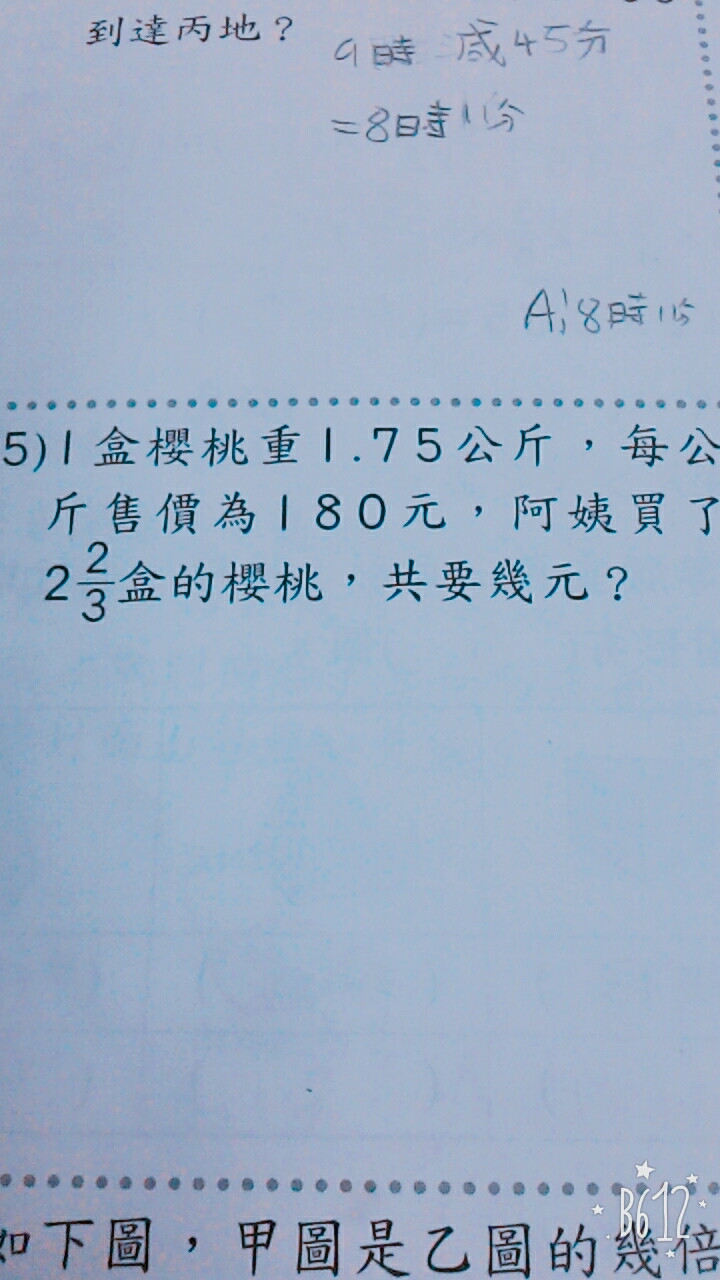 到達丙地？
9時 減45分
=8時11分
A:8時11分
5)1盒櫻桃重1.75公斤，每公
斤售價為180元，阿姨買了
2 2/3 盒的櫻桃，共要幾元？
如下圖，甲圖是乙圖的幾倍
B612